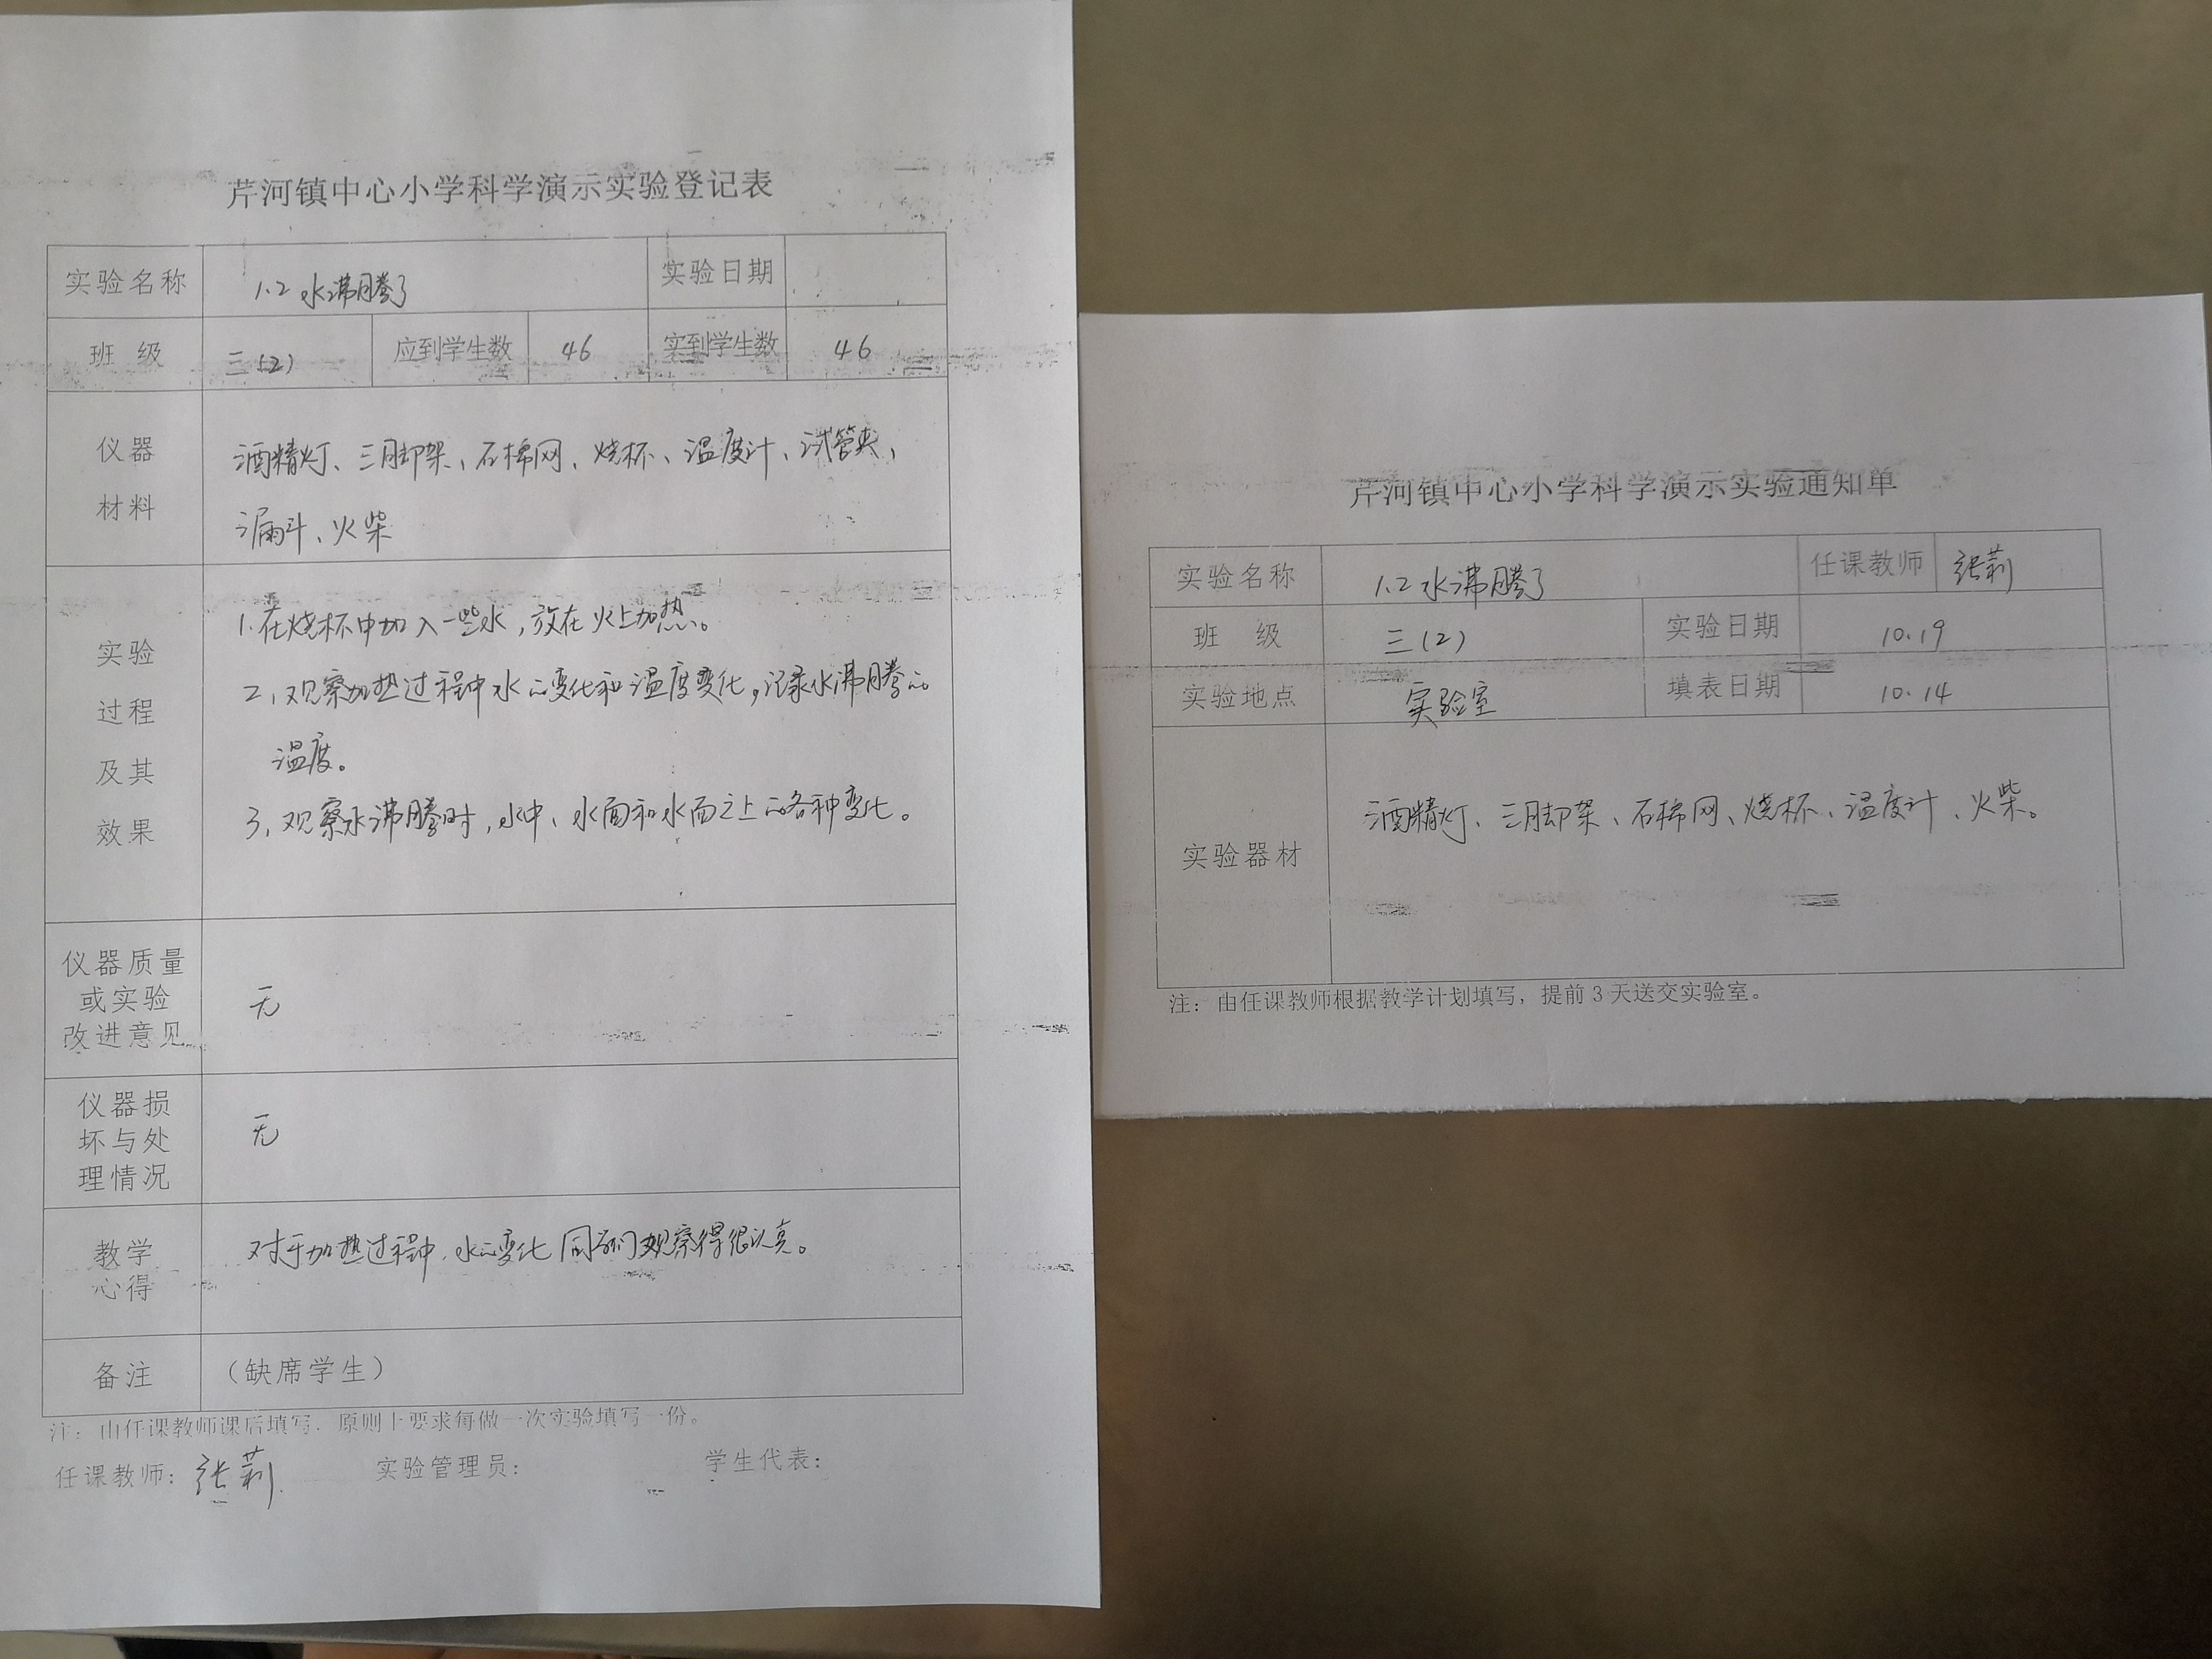 芹河镇中心小学科学演示实验登记表
实验名称 1.2 水沸腾了 实验日期
班 级 三(2) 应到学生数 46 实到学生数 46
仪器
材料
酒精灯、三脚架、石棉网、烧杯、温度计、试管夹、
漏斗、火柴
实验
过程
及其
效果
1.在烧杯中加入一些水,放在火上加热。
2、观察加热过程中水的变化和温度变化,记录水沸腾的
温度。
3、观察水沸腾时,水中、水面和水面之上的各种变化。
仪器质量
或实验
改进意见
无
仪器损
坏与处
理情况
无
教学
心得
对于加热过程中,水的变化同学们观察得很认真。
备注 (缺席学生)
注:由任课教师课后填写,原则上要求每做一次实验填写一份。
任课教师:张莉 实验管理员: 学生代表:
芹河镇中心小学科学演示实验通知单
实验名称 1.2 水沸腾了 任课教师 张莉
班 级 三(2) 实验日期 10.19
实验地点 实验室 填表日期 10.14
实验器材 酒精灯、三脚架、石棉网、烧杯、温度计、火柴。
注:由任课教师根据教学计划填写,提前3天送交实验室。